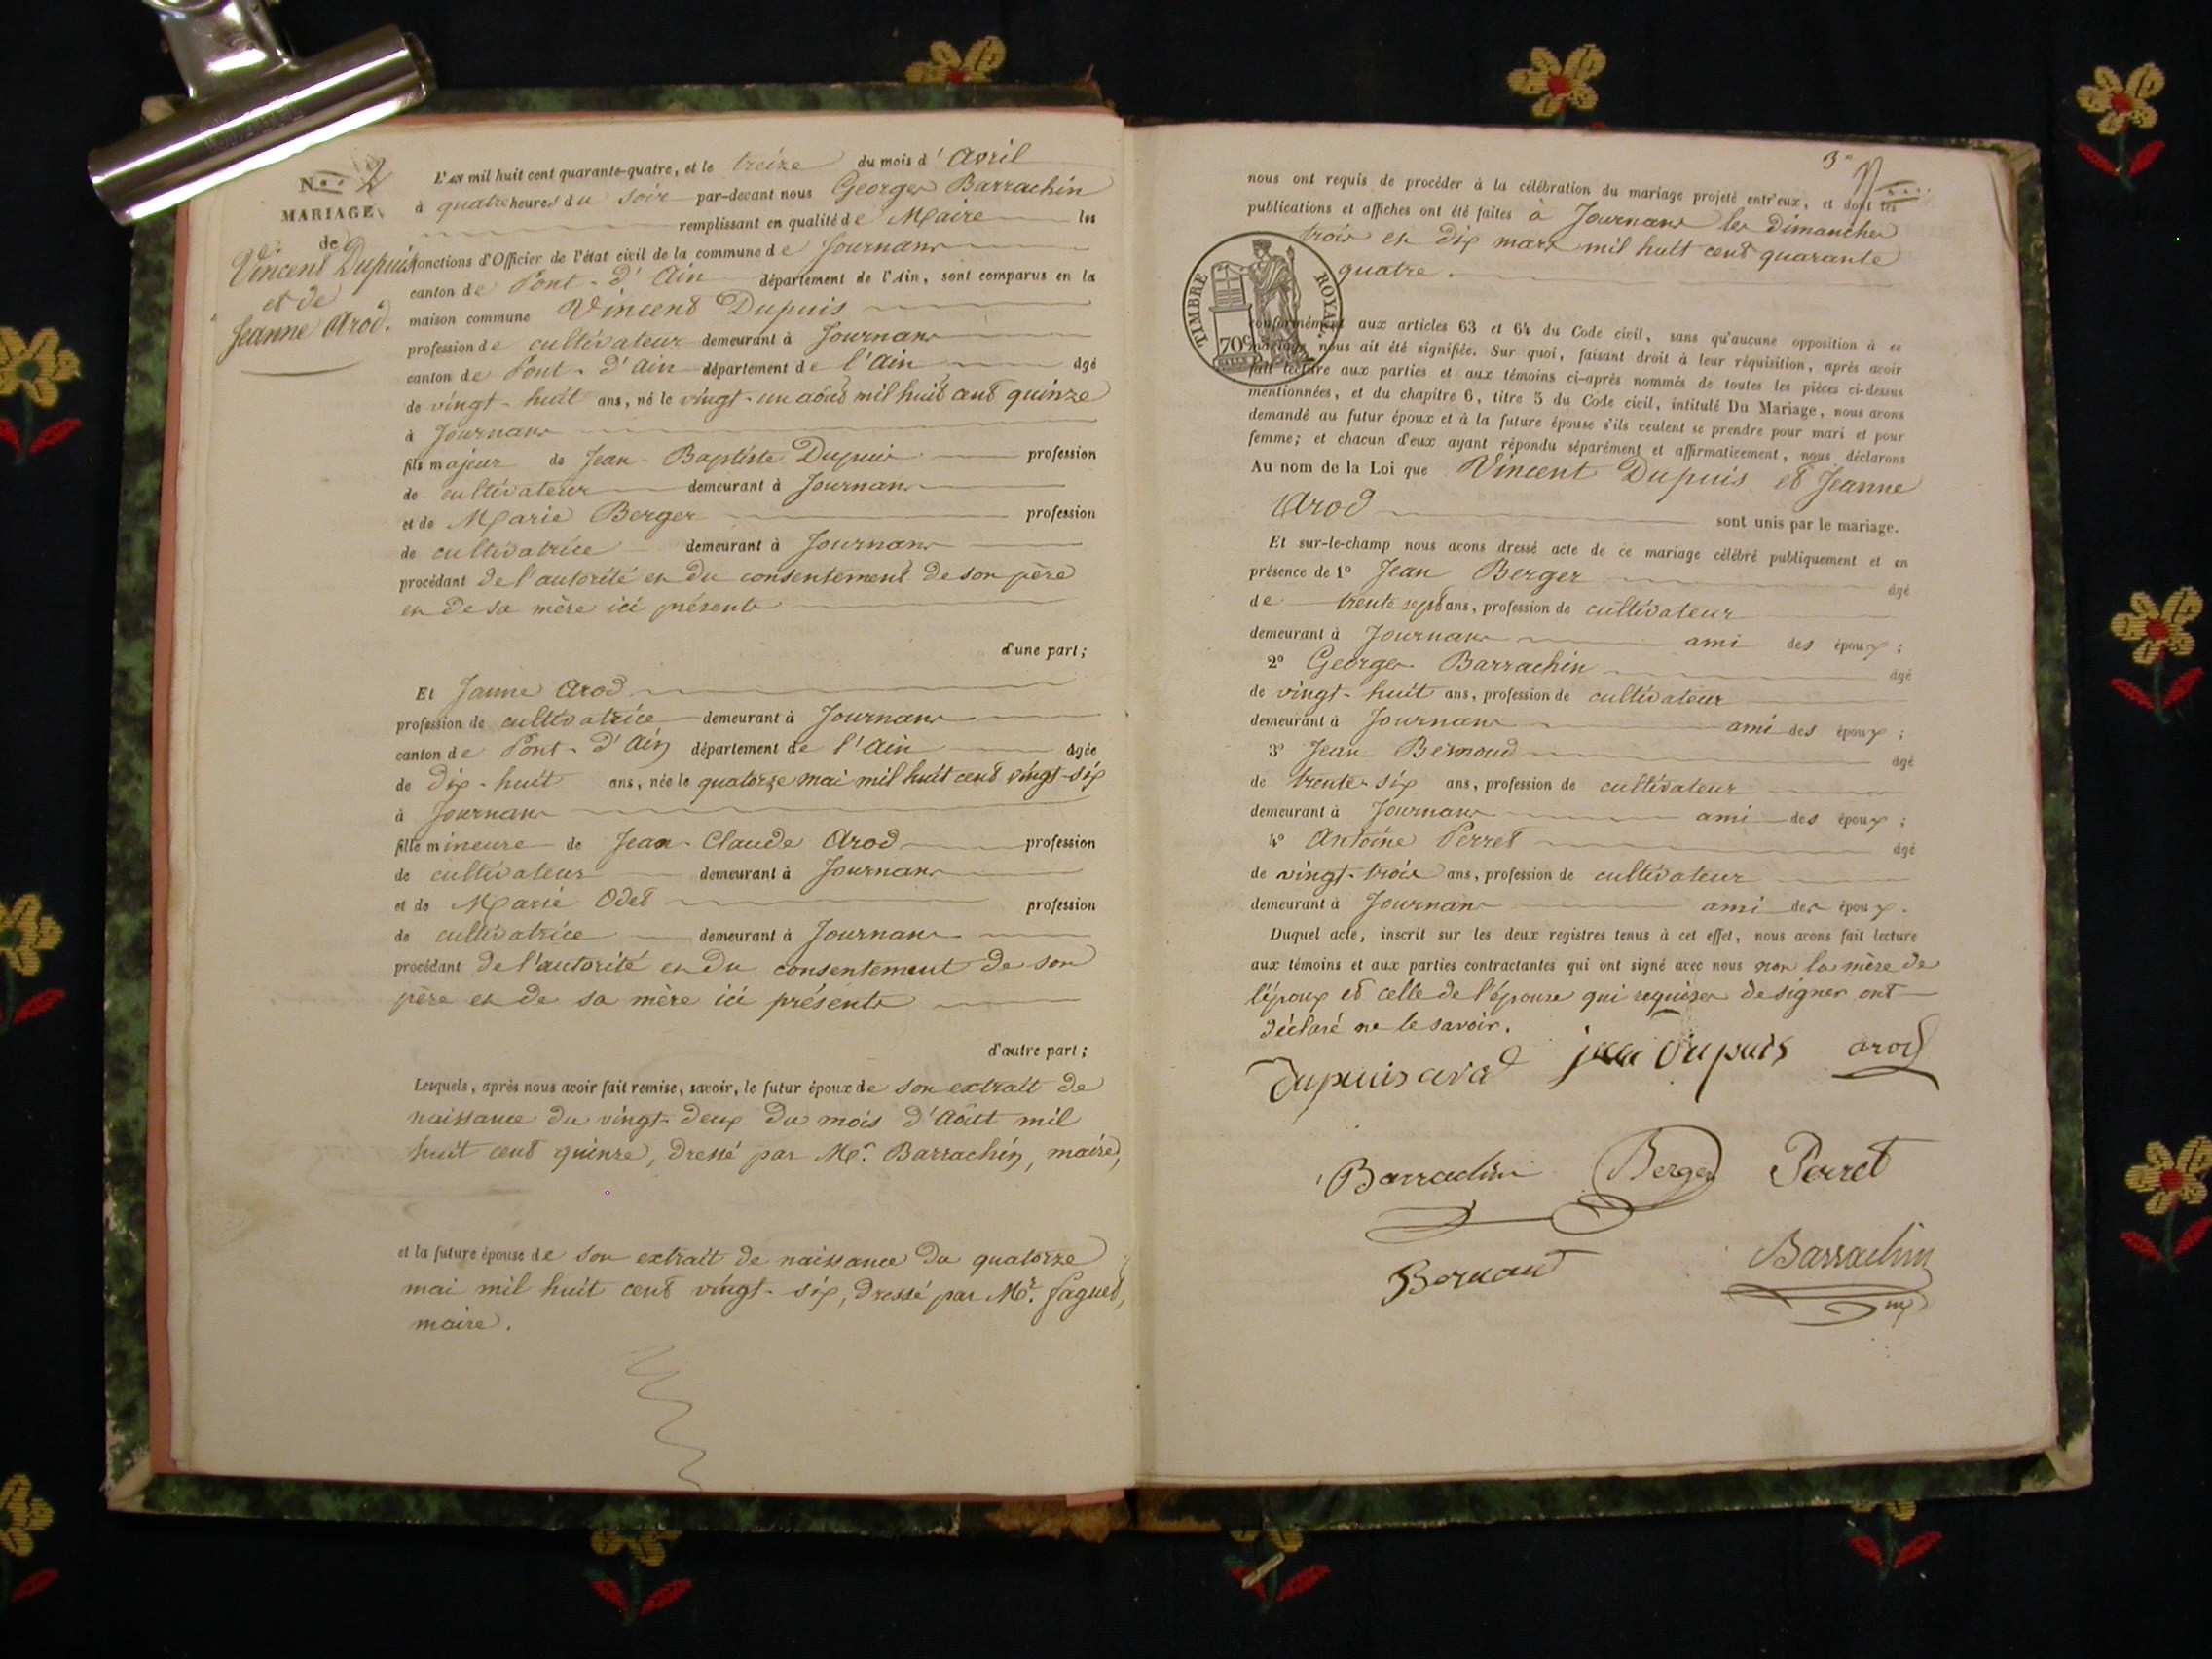 N.º 2
MARIAGE
de
Vincent Dupuis
et de
Jeanne Arod.
L'an mil huit cent quarante-quatre, et le treize du mois d'Avril
à quatre heures du soir par-devant nous Georges Barrachin
remplissant en qualité de Maire les
fonctions d'Officier de l'état civil de la commune de Journans
canton de Pont-d'Ain département de l'Ain, sont comparus en la
maison commune Vincent Dupuis
profession de cultivateur demeurant à Journans
canton de Pont-d'Ain département de l'Ain âgé
de vingt-huit ans, né le vingt-un août mil huit cent quinze
à Journans
fils majeur de Jean-Baptiste Dupuis profession
de cultivateur demeurant à Journans
et de Marie Berger profession
de cultivatrice demeurant à Journans
procédant de l'autorité et du consentement de son père
et de sa mère ici présents
d'une part;
Et Jeanne Arod
profession de cultivatrice demeurant à Journans
canton de Pont-d'Ain département de l'Ain âgée
de dix-huit ans, née le quatorze mai mil huit cent vingt-six
à Journans
fille mineure de Jean-Claude Arod profession
de cultivateur demeurant à Journans
et de Marie Odet profession
de cultivatrice demeurant à Journans
procédant de l'autorité et du consentement de son
père et de sa mère ici présents
d'autre part;
Lesquels, après nous avoir fait remise, savoir, le futur époux de son extrait de
naissance du vingt-deux du mois d'Août mil
huit cent quinze, dressé par Mr. Barrachin, maire,
et la future épouse de son extrait de naissance du quatorze
mai mil huit cent vingt-six, dressé par Mr. Faguet,
maire.
3e
nous ont requis de procéder à la célébration du mariage projeté entr'eux, et dont les
publications et affiches ont été faites à Journans les dimanches
trois et dix mars mil huit cent quarante
quatre.
TIMBRE ROYAL
70c
conformément aux articles 63 et 64 du Code civil, sans qu'aucune opposition à ce
mariage nous ait été signifiée. Sur quoi, faisant droit à leur réquisition, après avoir
fait lecture aux parties et aux témoins ci-après nommés de toutes les pièces ci-dessus
mentionnées, et du chapitre 6, titre 5 du Code civil, intitulé Du Mariage, nous avons
demandé au futur époux et à la future épouse s'ils veulent se prendre pour mari et pour
femme; et chacun d'eux ayant répondu séparément et affirmativement, nous déclarons
Au nom de la Loi que Vincent Dupuis et Jeanne
Arod sont unis par le mariage.
Et sur-le-champ nous avons dressé acte de ce mariage célébré publiquement et en
présence de 1º Jean Berger âgé
de trente sept ans, profession de cultivateur
demeurant à Journans ami des époux;
2º Georges Barrachin âgé
de vingt-huit ans, profession de cultivateur
demeurant à Journans ami des époux;
3º Jean Bernoud âgé
de trente-six ans, profession de cultivateur
demeurant à Journans ami des époux;
4º Antoine Perret âgé
de vingt-trois ans, profession de cultivateur
demeurant à Journans ami des époux.
Duquel acte, inscrit sur les deux registres tenus à cet effet, nous avons fait lecture
aux témoins et aux parties contractantes qui ont signé avec nous non la mère de
l'époux et celle de l'épouse qui requises de signer ont
déclaré ne le savoir.
Dupuis arod Dupuis arod
Barrachin Berger Perret
Bernoud Barrachin